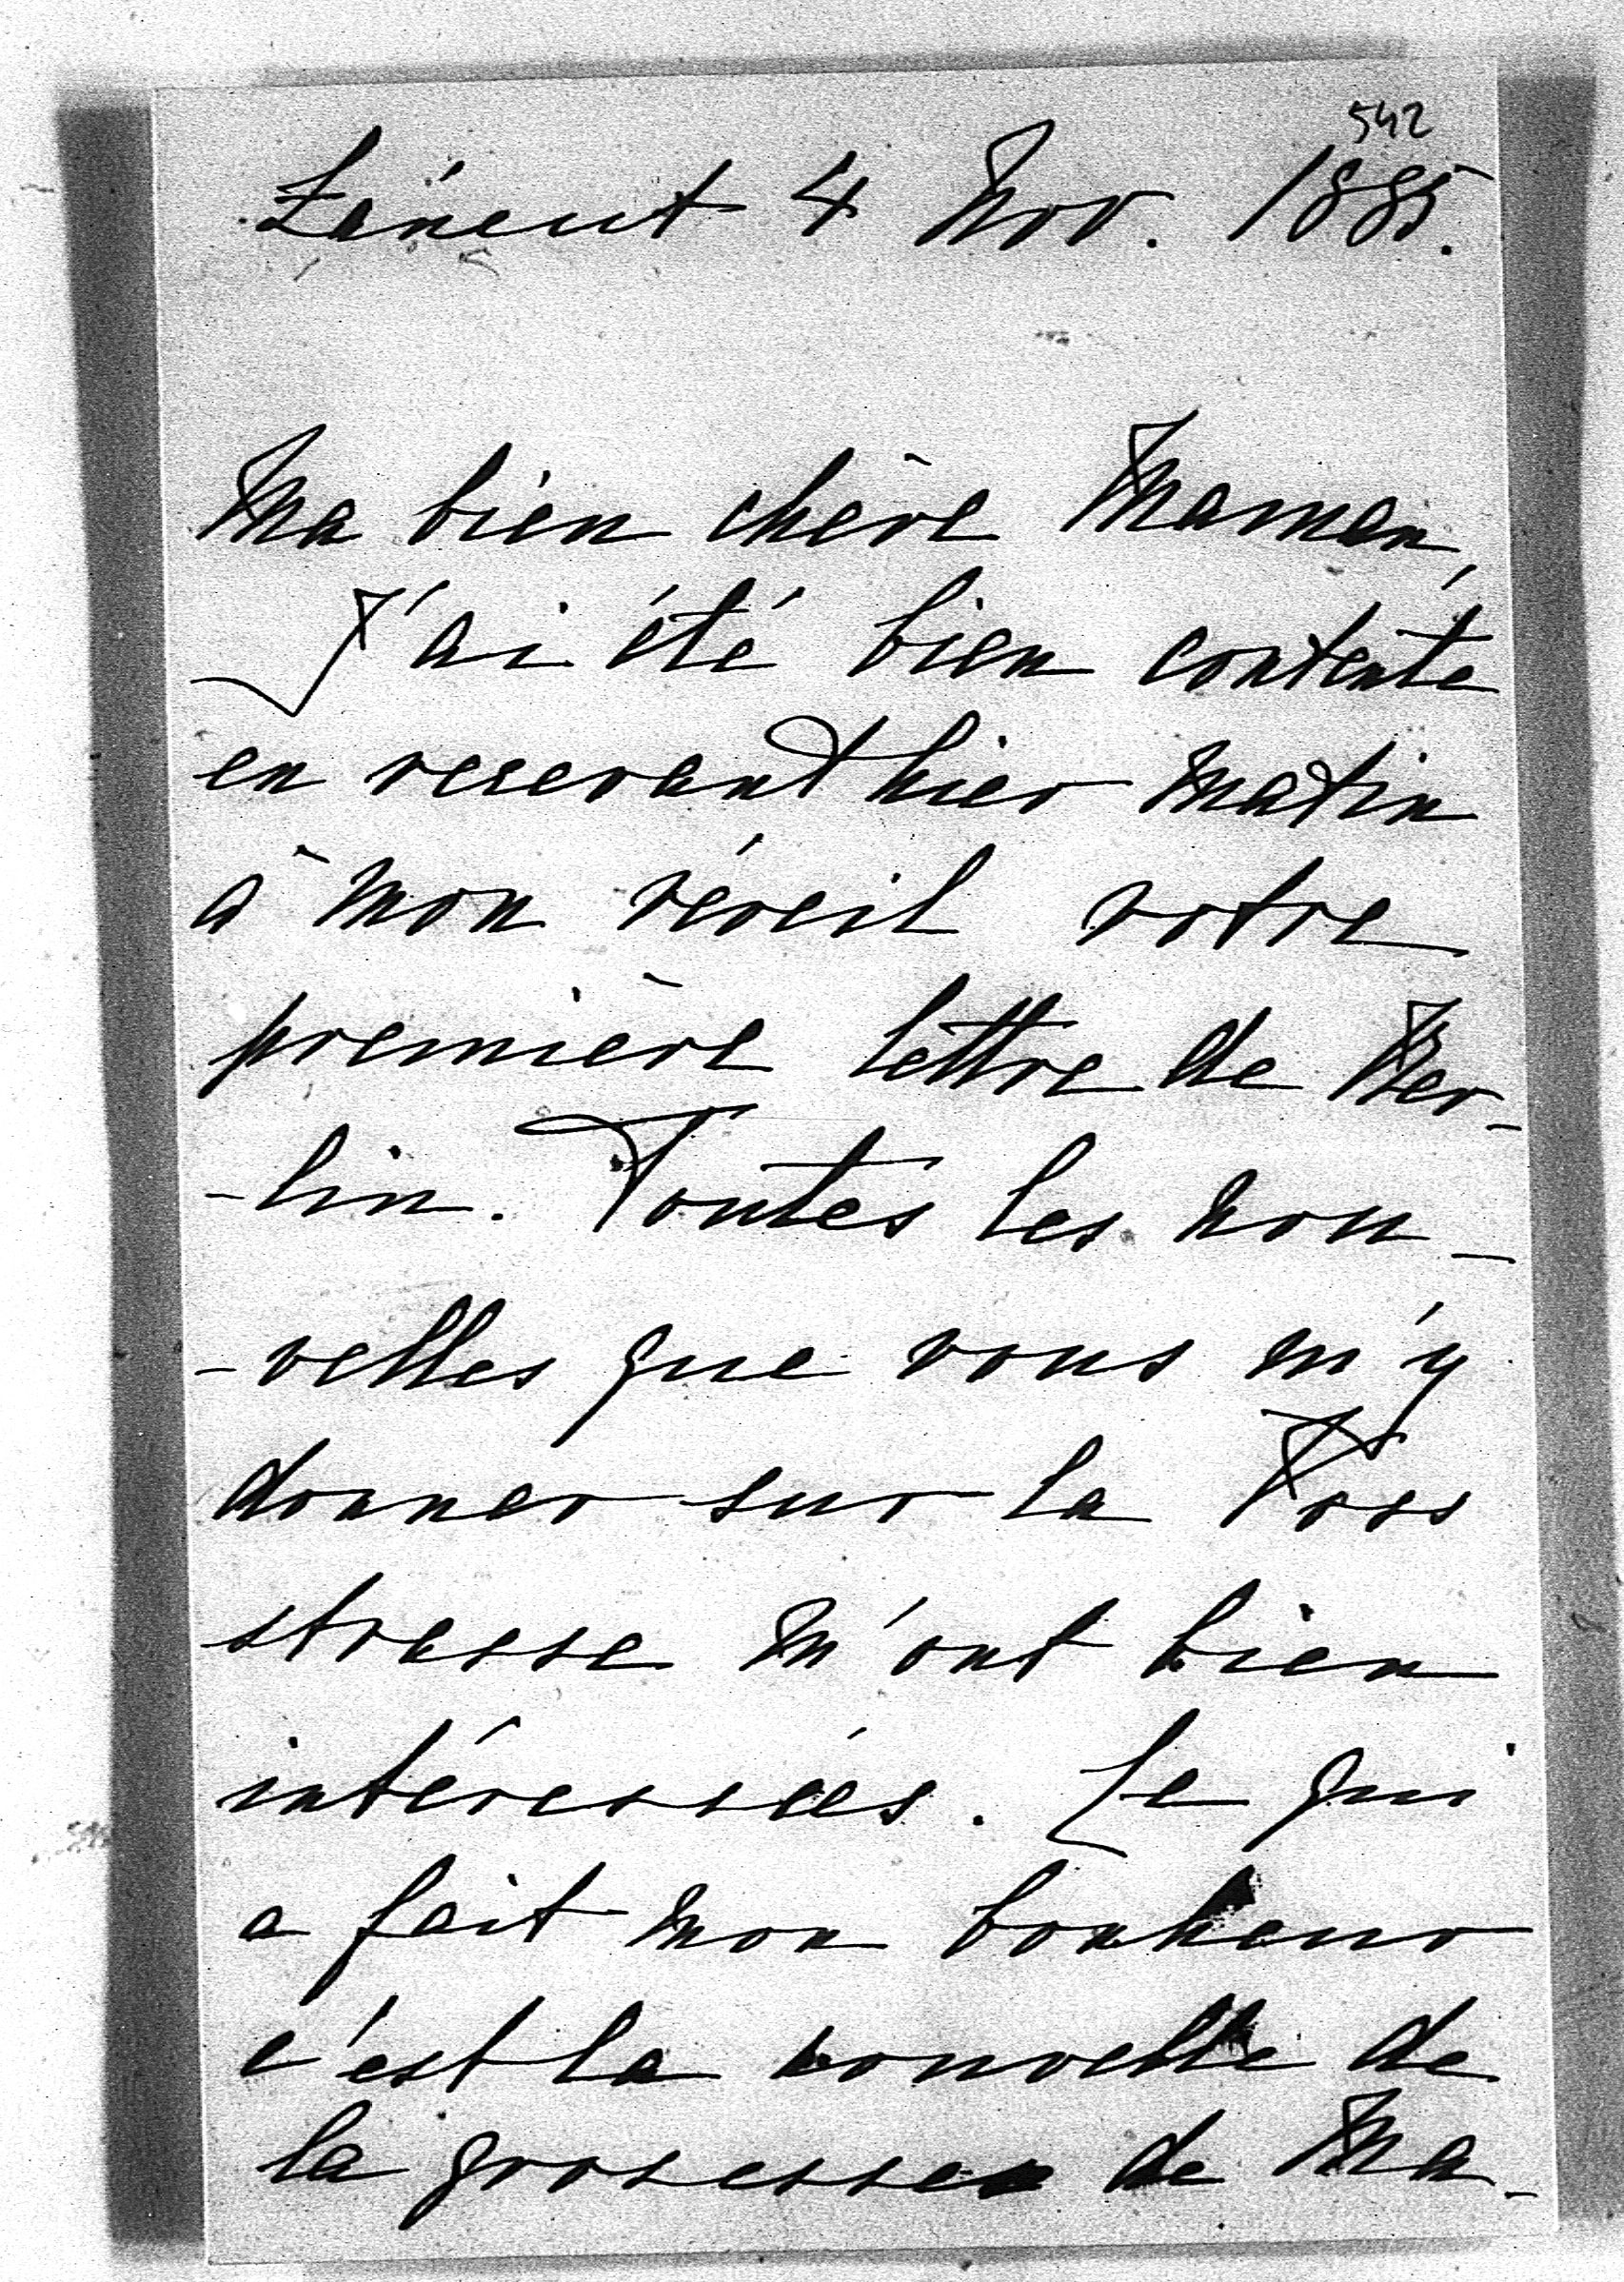 542
Láncut 4 Nov. 1885.
Ma bien chère Maman,
J'ai été bien contente
en recevant hier matin
à mon réveil votre
première lettre de Ber-
-lin. Toutes les nou-
-velles que vous m'y
donner sur la Foss
stresse m'ont bien
intéressées. Ce qui
a fait mon bonheur
c'est la nouvelle de
la grosesse de Ma-